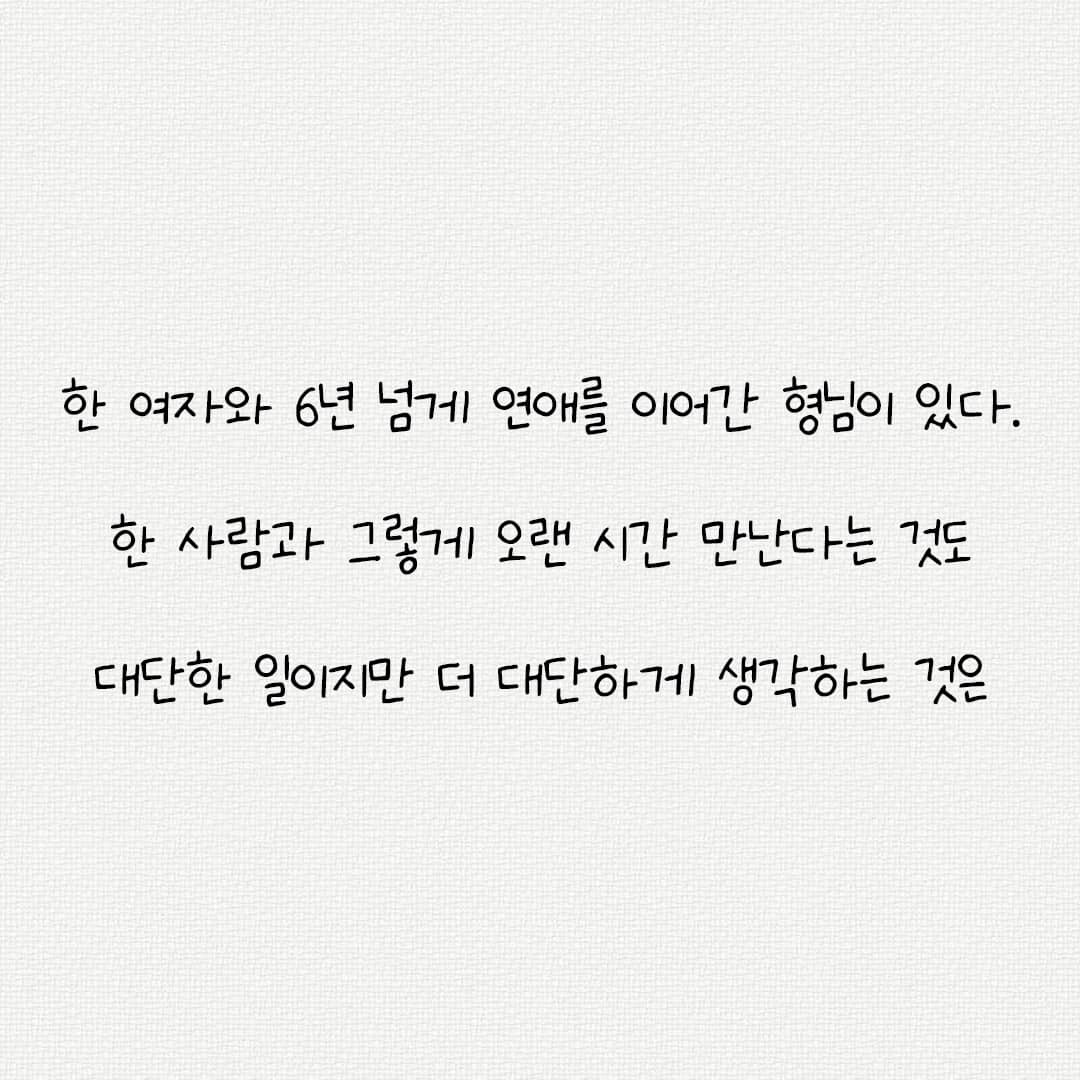 한 여자와 6년 넘게 연애를 이어간 형님이 있다.
한 사람과 그렇게 오랜 시간 만난다는 것도
대단한 일이지만 더 대단하게 생각하는 것은